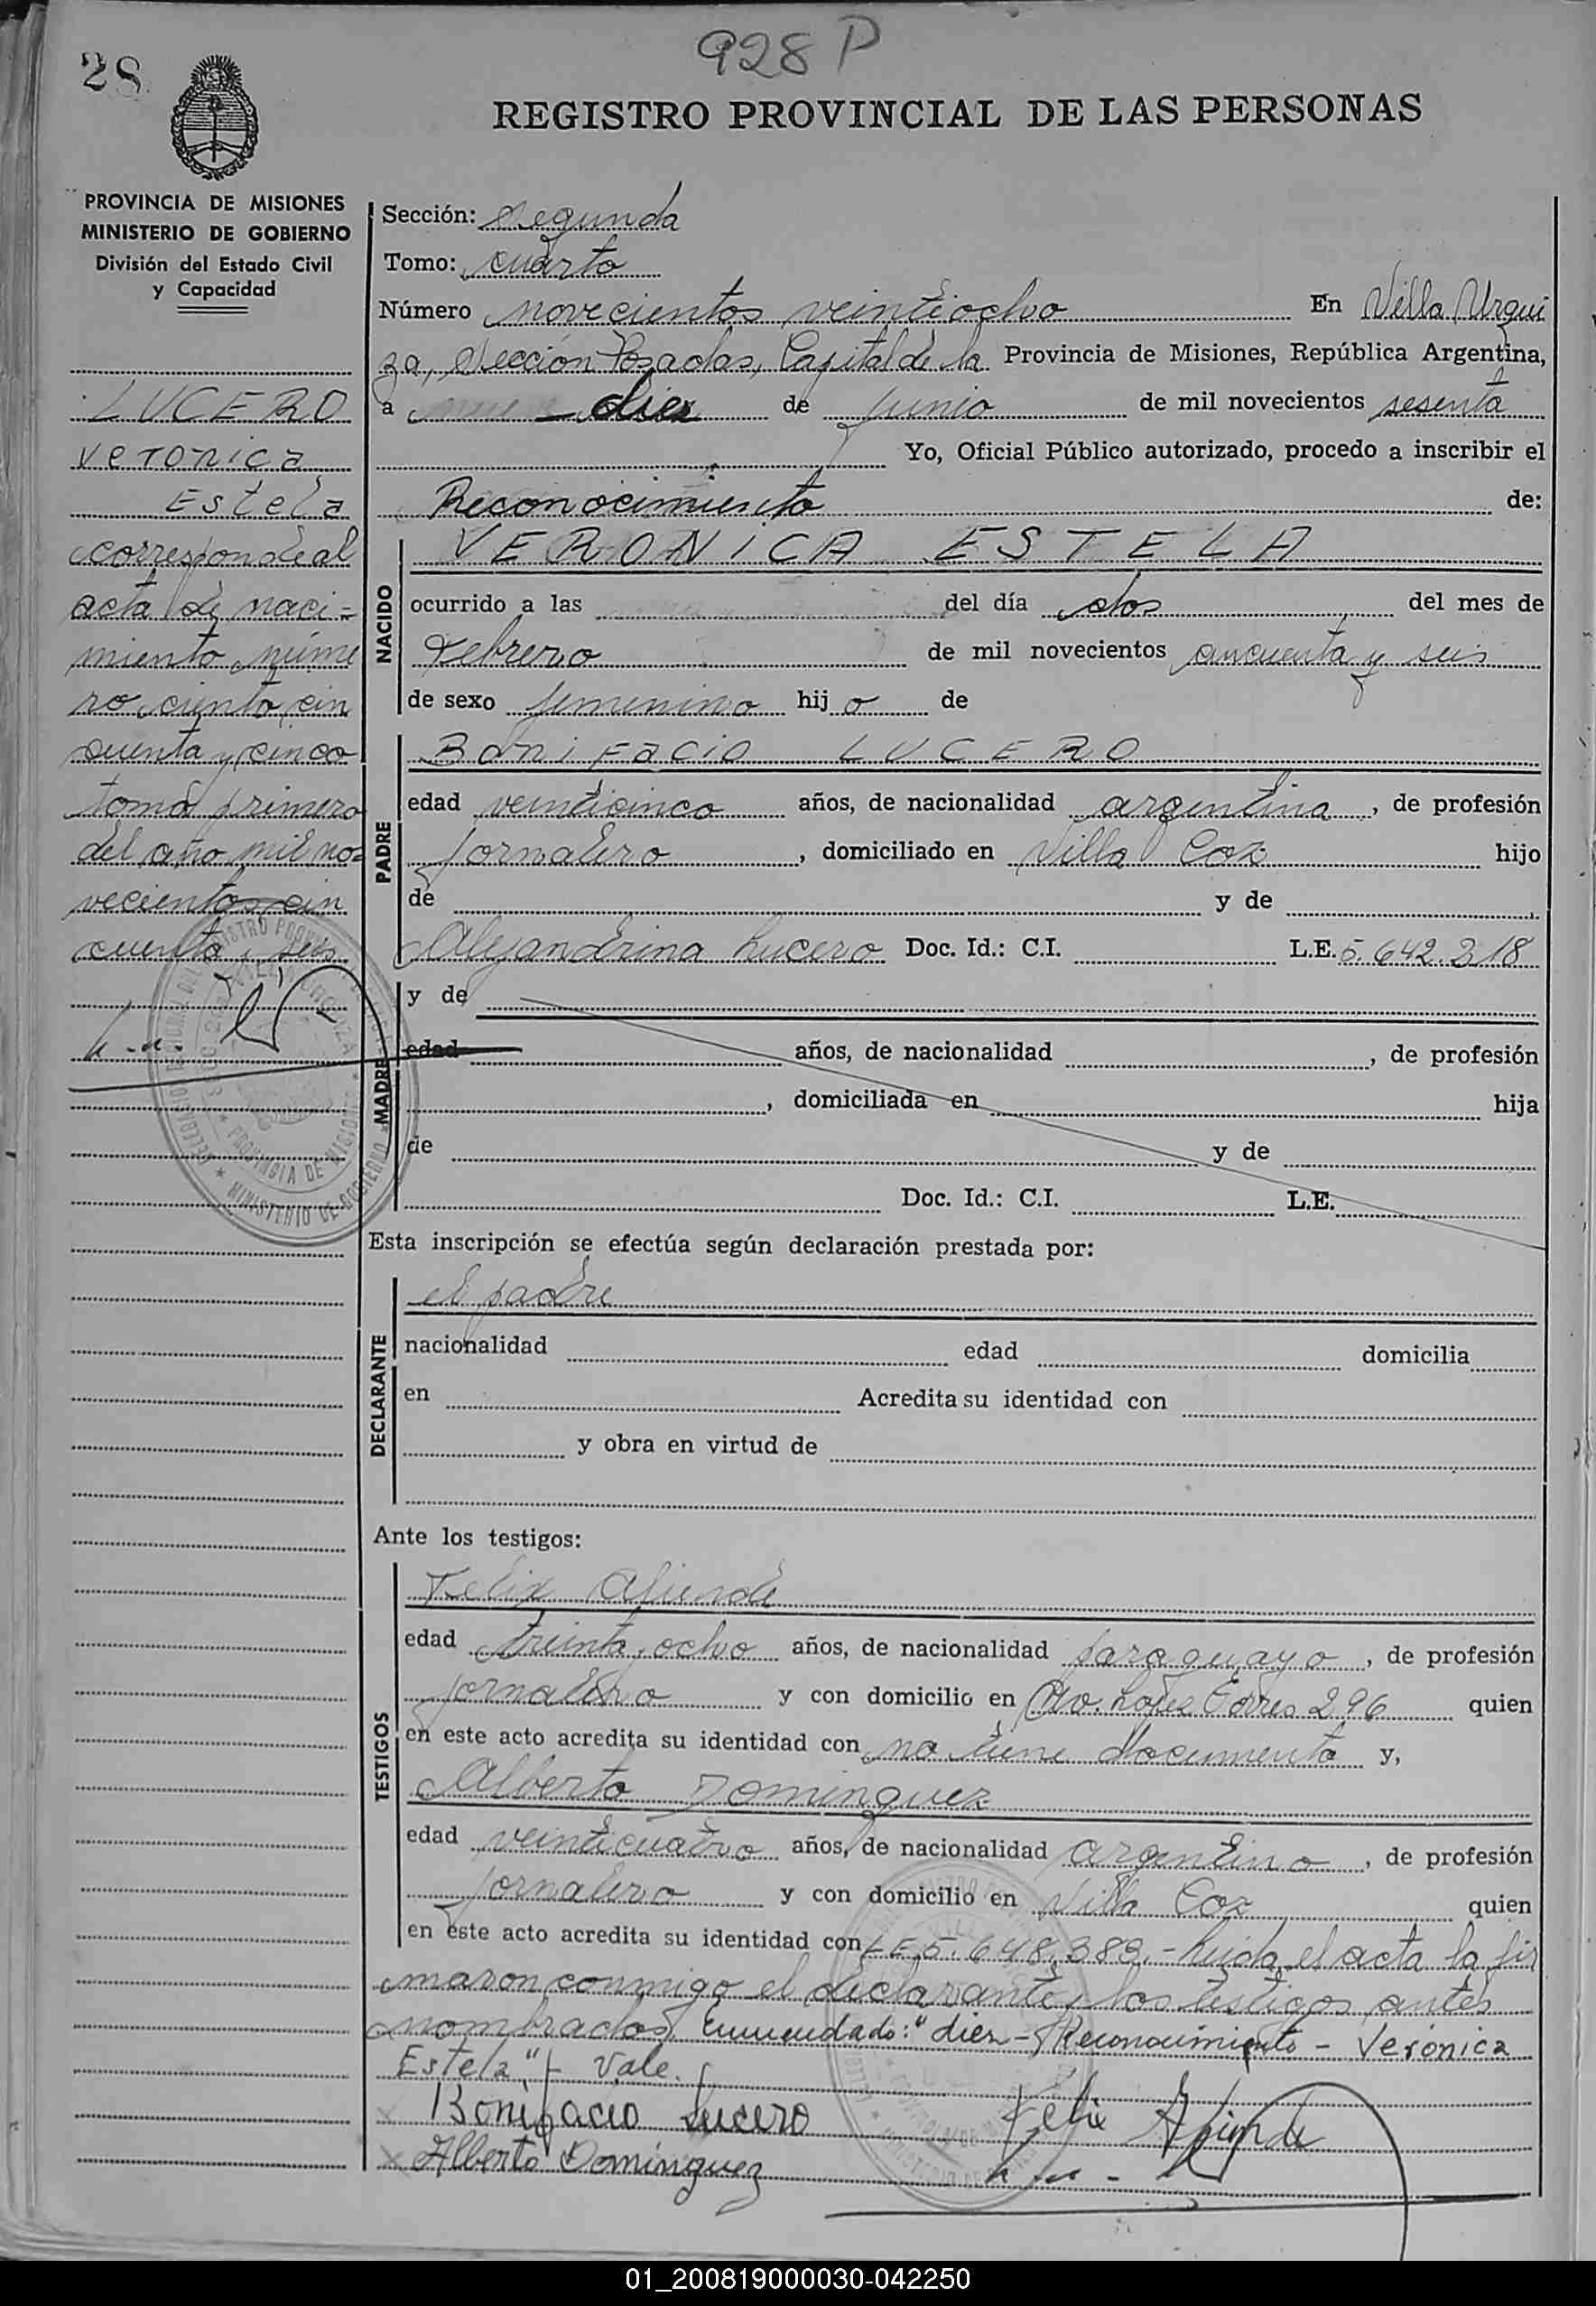 928 P
28
REGISTRO PROVINCIAL DE LAS PERSONAS
PROVINCIA DE MISIONES
MINISTERIO DE GOBIERNO
División del Estado Civil
y Capacidad
LUCERO
Veronica
Estela
correspondeal
acta de naci=
miento núme
ro ciento cin
cuenta y cinco
tomo primero
del año mil no=
vecientos cin
cuenta y seis
Sección: Segunda
Tomo: cuarto
Número novecientos veintiocho En Villa Urqui
za, Sección Posadas, Capital de la Provincia de Misiones, República Argentina,
a diez de junio de mil novecientos sesenta
Yo, Oficial Público autorizado, procedo a inscribir el
Reconocimiento de:
NACIDO
VERONICA ESTELA
ocurrido a las del día dos del mes de
Febrero de mil novecientos cincuenta y seis
de sexo femenino hij o de
PADRE
Bonifacio LUCERO
edad veinticinco años, de nacionalidad argentina, de profesión
jornalero, domiciliado en Villa Coz hijo
de y de
Alejandrina Lucero Doc. Id.: C.I. L.E. 5.642.318
MADRE
y de
edad años, de nacionalidad , de profesión
, domiciliada en hija
de y de
Doc. Id.: C.I. L.E.
Esta inscripción se efectúa según declaración prestada por:
DECLARANTE
el padre
nacionalidad edad domicilia
en Acredita su identidad con
y obra en virtud de
Ante los testigos:
TESTIGOS
Felix Aliende
edad treinta y ocho años, de nacionalidad paraguayo, de profesión
jornalero y con domicilio en Av. Lopez Torres 296 quien
en este acto acredita su identidad con no tiene documento y,
Alberto Dominguez
edad veinticuatro años, de nacionalidad argentino, de profesión
jornalero y con domicilio en Villa Coz quien
en este acto acredita su identidad con LE 5.648.383.- Leida el acta la fir
maron conmigo el declarante y los testigos antes
nombrados. Enmendado: "diez - Reconocimiento - Verónica
Estela" - Vale.
Bonifacio Lucero
Felix Aliende
Alberto Dominguez
01_200819000030-042250